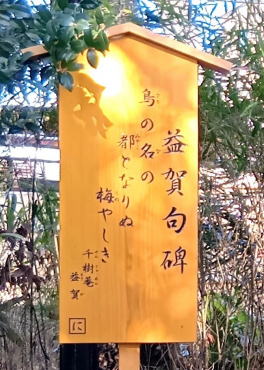 益賀句碑
鳥の名の
都となりぬ
梅やしき
千樹菴
益賀
に